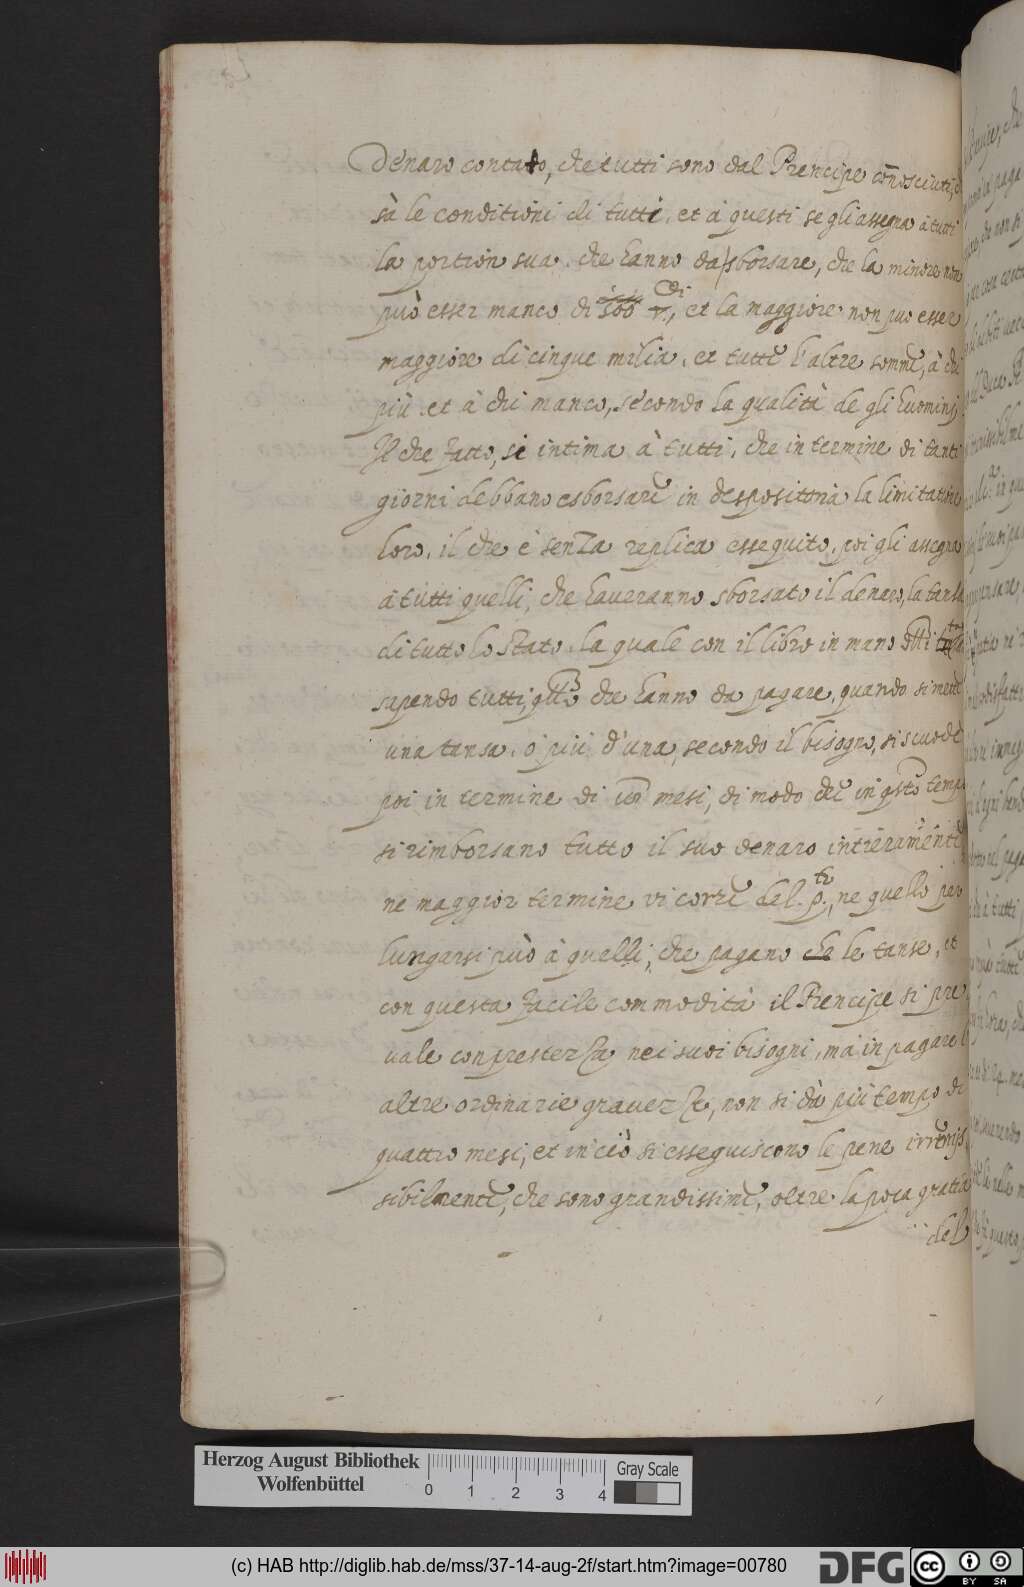 Denaro contado, che tutti sono dal Prencipe connosciuti, e
sà le conditioni di tutti, et à questi se gli assegna à tutti
la portion sua che hanno da sborsare, che la minore non
può esser manco di 500 di, et la maggiore non puo esser
maggiore di cinque milia, et tutte l'altre somme, à chi
più et à chi manco, secondo la qualità de gli huomini
Il che fatto, si intima à tutti, che in termine di tanti
giorni debbano esborsare in desposittria la limitatione
loro, il che è senza replica essequito, poi gli assegna
à tutti quelli, che haveranno sborsato il denaro, la tansa
di tutto lo stato, la quale con il libro in mano
sapendo tutti, che hanno da pagare, quando si mette
una tansa, ò più d'una, secondo il bisogno, si scuode
poi in termine di mesi, di modo che in qsto tempo
si rimborsano tutto il suo denaro intieramente
ne maggior termine vi corre del p.to, ne quello pro
lungarsi può à quelli, che pagano che le tanse, et
con questa facile commodità il Prencipe si pre
vale con prestezza nei suoi bisogni, mà in pagare l
altre ordinarie gravezze, non si dà più tempo di
quattro mesi, et in ciò si esseguiscono le pene irremis
sibilmente, che sono grandissime, oltre la poca gratia
del
Herzog August Bibliothek
Wolfenbüttel
0 1 2 3 4
Gray Scale
(c) HAB http://diglib.hab.de/mss/37-14-aug-2f/start.htm?image=00780
DFG
cc BY SA